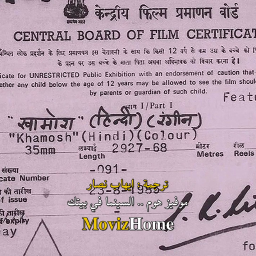 केन्द्रीय फिल्म प्रमाणन बोर्ड
CENTRAL BOARD OF FILM CERTIFICAT
cate for UNRESTRICTED Public Exhibition with an endorsement of caution that
ether any child below the age of 12 years may be allowed to see the film should
by parents or guardian of such child.
Featu
भाग I/Part I
"खामोश" (हिन्दी) (रंगीन)
"Khamosh"(Hindi)(Colour)
35mm लम्बाई 2927-68 मीटर रील
Length Metres Reels
संख्या -091-
cate Number
ترجمة: إيهاب نصار
की तारीख 23-8-1985
of issue
موفيز هوم .. السينما في بيتك
की तारीख
expiry
MovizHome
fo